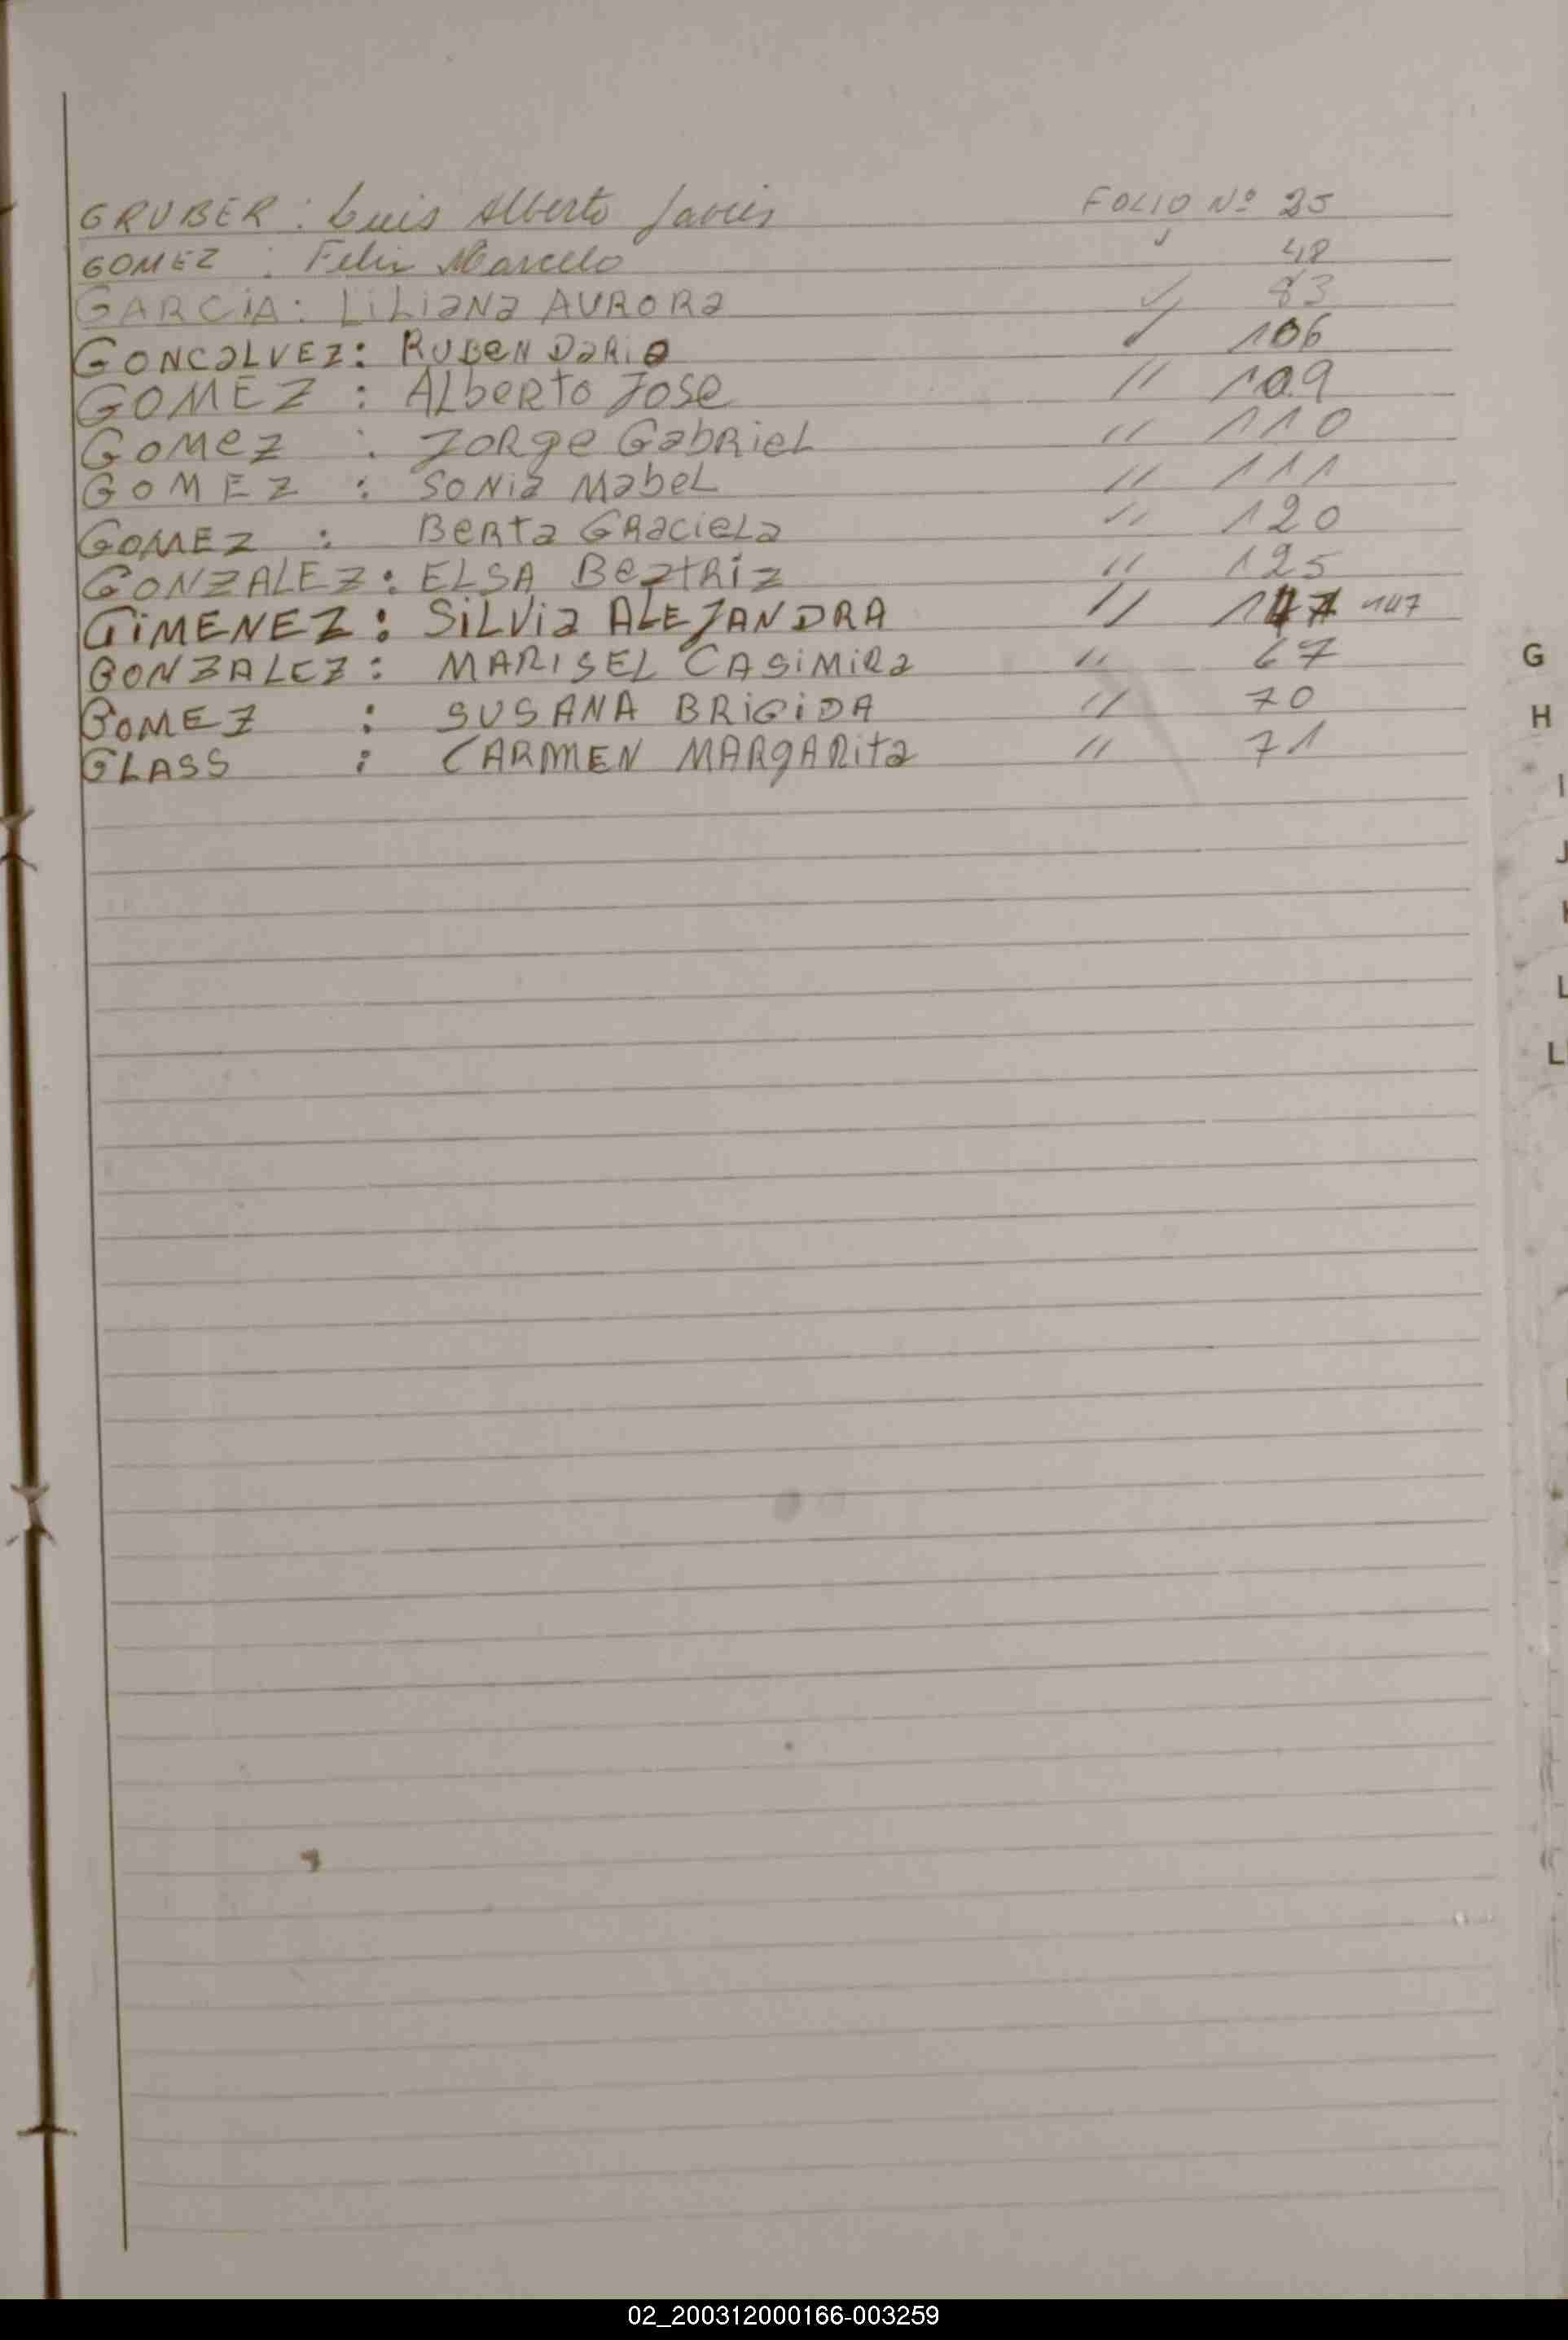 GRUBER : Luis Alberto Javier FOLIO Nº 25
GOMEZ : Felix Marcelo " 48
GARCIA: LiLiana AURORa " 83
GONCaLVEZ: RUBeN DaRio " 106
GOMEZ : ALbeRto JOSe " 109
GoMeZ : JoRge GabRieL " 110
GOMEZ : SoNia MabeL " 111
GOMEZ : BeRta GRacieLa " 120
GONZALEZ: ELSA BeatRiz " 125
GiMENEZ: SiLVia ALEJANDRA " 147 147
GONZALEZ: MARISEL CASiMiRa " 67
GOMEZ : SUSANA BRiGiDA " 70
GLASS : CARMEN MARgARita " 71
G
H
I
J
L
L
02_200312000166-003259